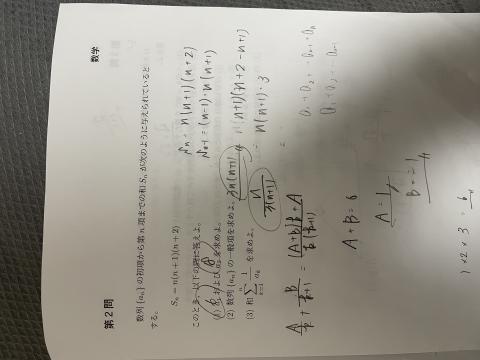 数学
第2問
数列{aₙ}の初項から第n項までの和Sₙが次のように与えられていると
する。
Sₙ = n(n+1)(n+2)
このとき、以下の問に答えよ。
(1) a₁ および a₂ を求めよ。
(2) 数列{aₙ}の一般項を求めよ。 3n(n+1)
(3) 和 Σₖ₌₁ⁿ 1/aₖ を求めよ。 n/3(n+1)
Sₙ = n(n+1)(n+2)
Sₙ₋₁ = (n-1)·n(n+1)
n(n+1)(n+2-n+1)
= n(n+1)·3
=
a₁+a₂+…aₙ₋₁+aₙ
a₁+a₂…aₙ₋₁
A/k + B/(k+1) = ((A+B)k+A)/(k(k+1))
A+B=0
A=1
B=-1
1×2×3=6